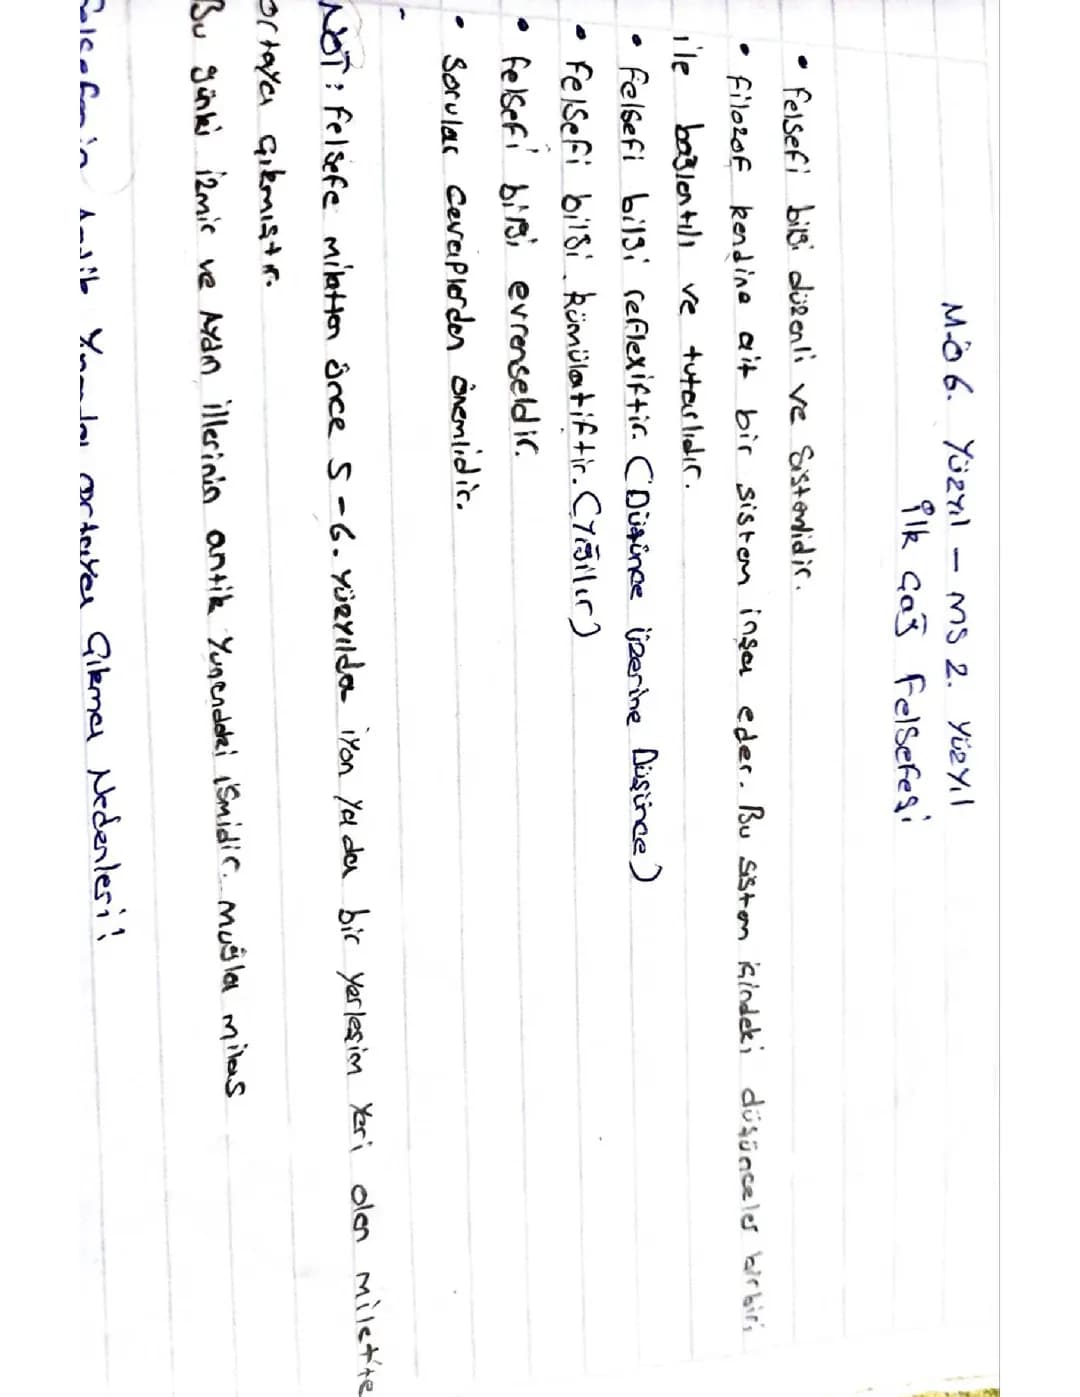 M.Ö 6. Yüzyıl - MS 2. Yüzyıl
İlk Çağ Felsefesi
• Felsefi bilgi düzenli ve Sistemlidir.
• Filozof kendine ait bir sistem inşa eder. Bu sistem içindeki düşünceler birbiri
ile bağlantılı ve tutarlıdır.
• Felsefi bilgi reflexiftir. (Düşünce üzerine Düşünce)
• Felsefi bilgi kümülatiftir. (Yığılır)
• Felsefi bilgi evrenseldir.
• Sorular Cevaplardan önemlidir.
NOT: Felsefe milattan önce 5-6. Yüzyılda iyon ya da bir yerleşim yeri olan milet'te
ortaya çıkmıştır.
Bu günki izmir ve Aydın illerinin antik Yunandaki ismidir. muğla milas
Felsefenin Antik Yunanda ortaya Çıkma Nedenleri!